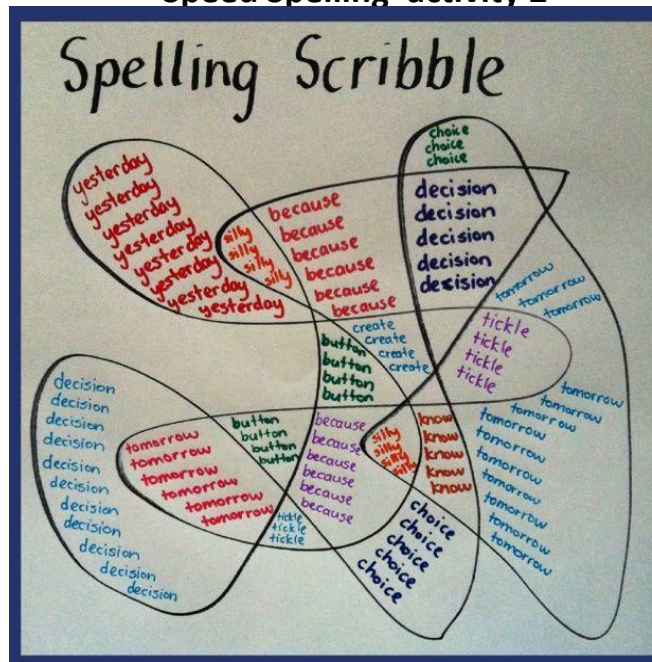 Speed Spelling activity
Spelling Scribble
choice
choice
choice
yesterday
yesterday
yesterday
yesterday
yesterday
yesterday
yesterday
yesterday
silly
silly
silly
silly
because
because
because
because
because
because
decision
decision
decision
decision
decision
tomorrow
tomorrow
tomorrow
create
create
create
create
button
button
button
button
tickle
tickle
tickle
tickle
decision
decision
decision
decision
decision
decision
decision
decision
decision
decision
decision
tomorrow
tomorrow
tomorrow
tomorrow
tomorrow
button
button
button
button
because
because
because
because
because
because
silly
silly
silly
silly
know
know
know
know
know
tomorrow
tomorrow
tomorrow
tomorrow
tomorrow
tomorrow
tomorrow
tomorrow
tomorrow
tomorrow
tickle
tickle
tickle
choice
choice
choice
choice
choice